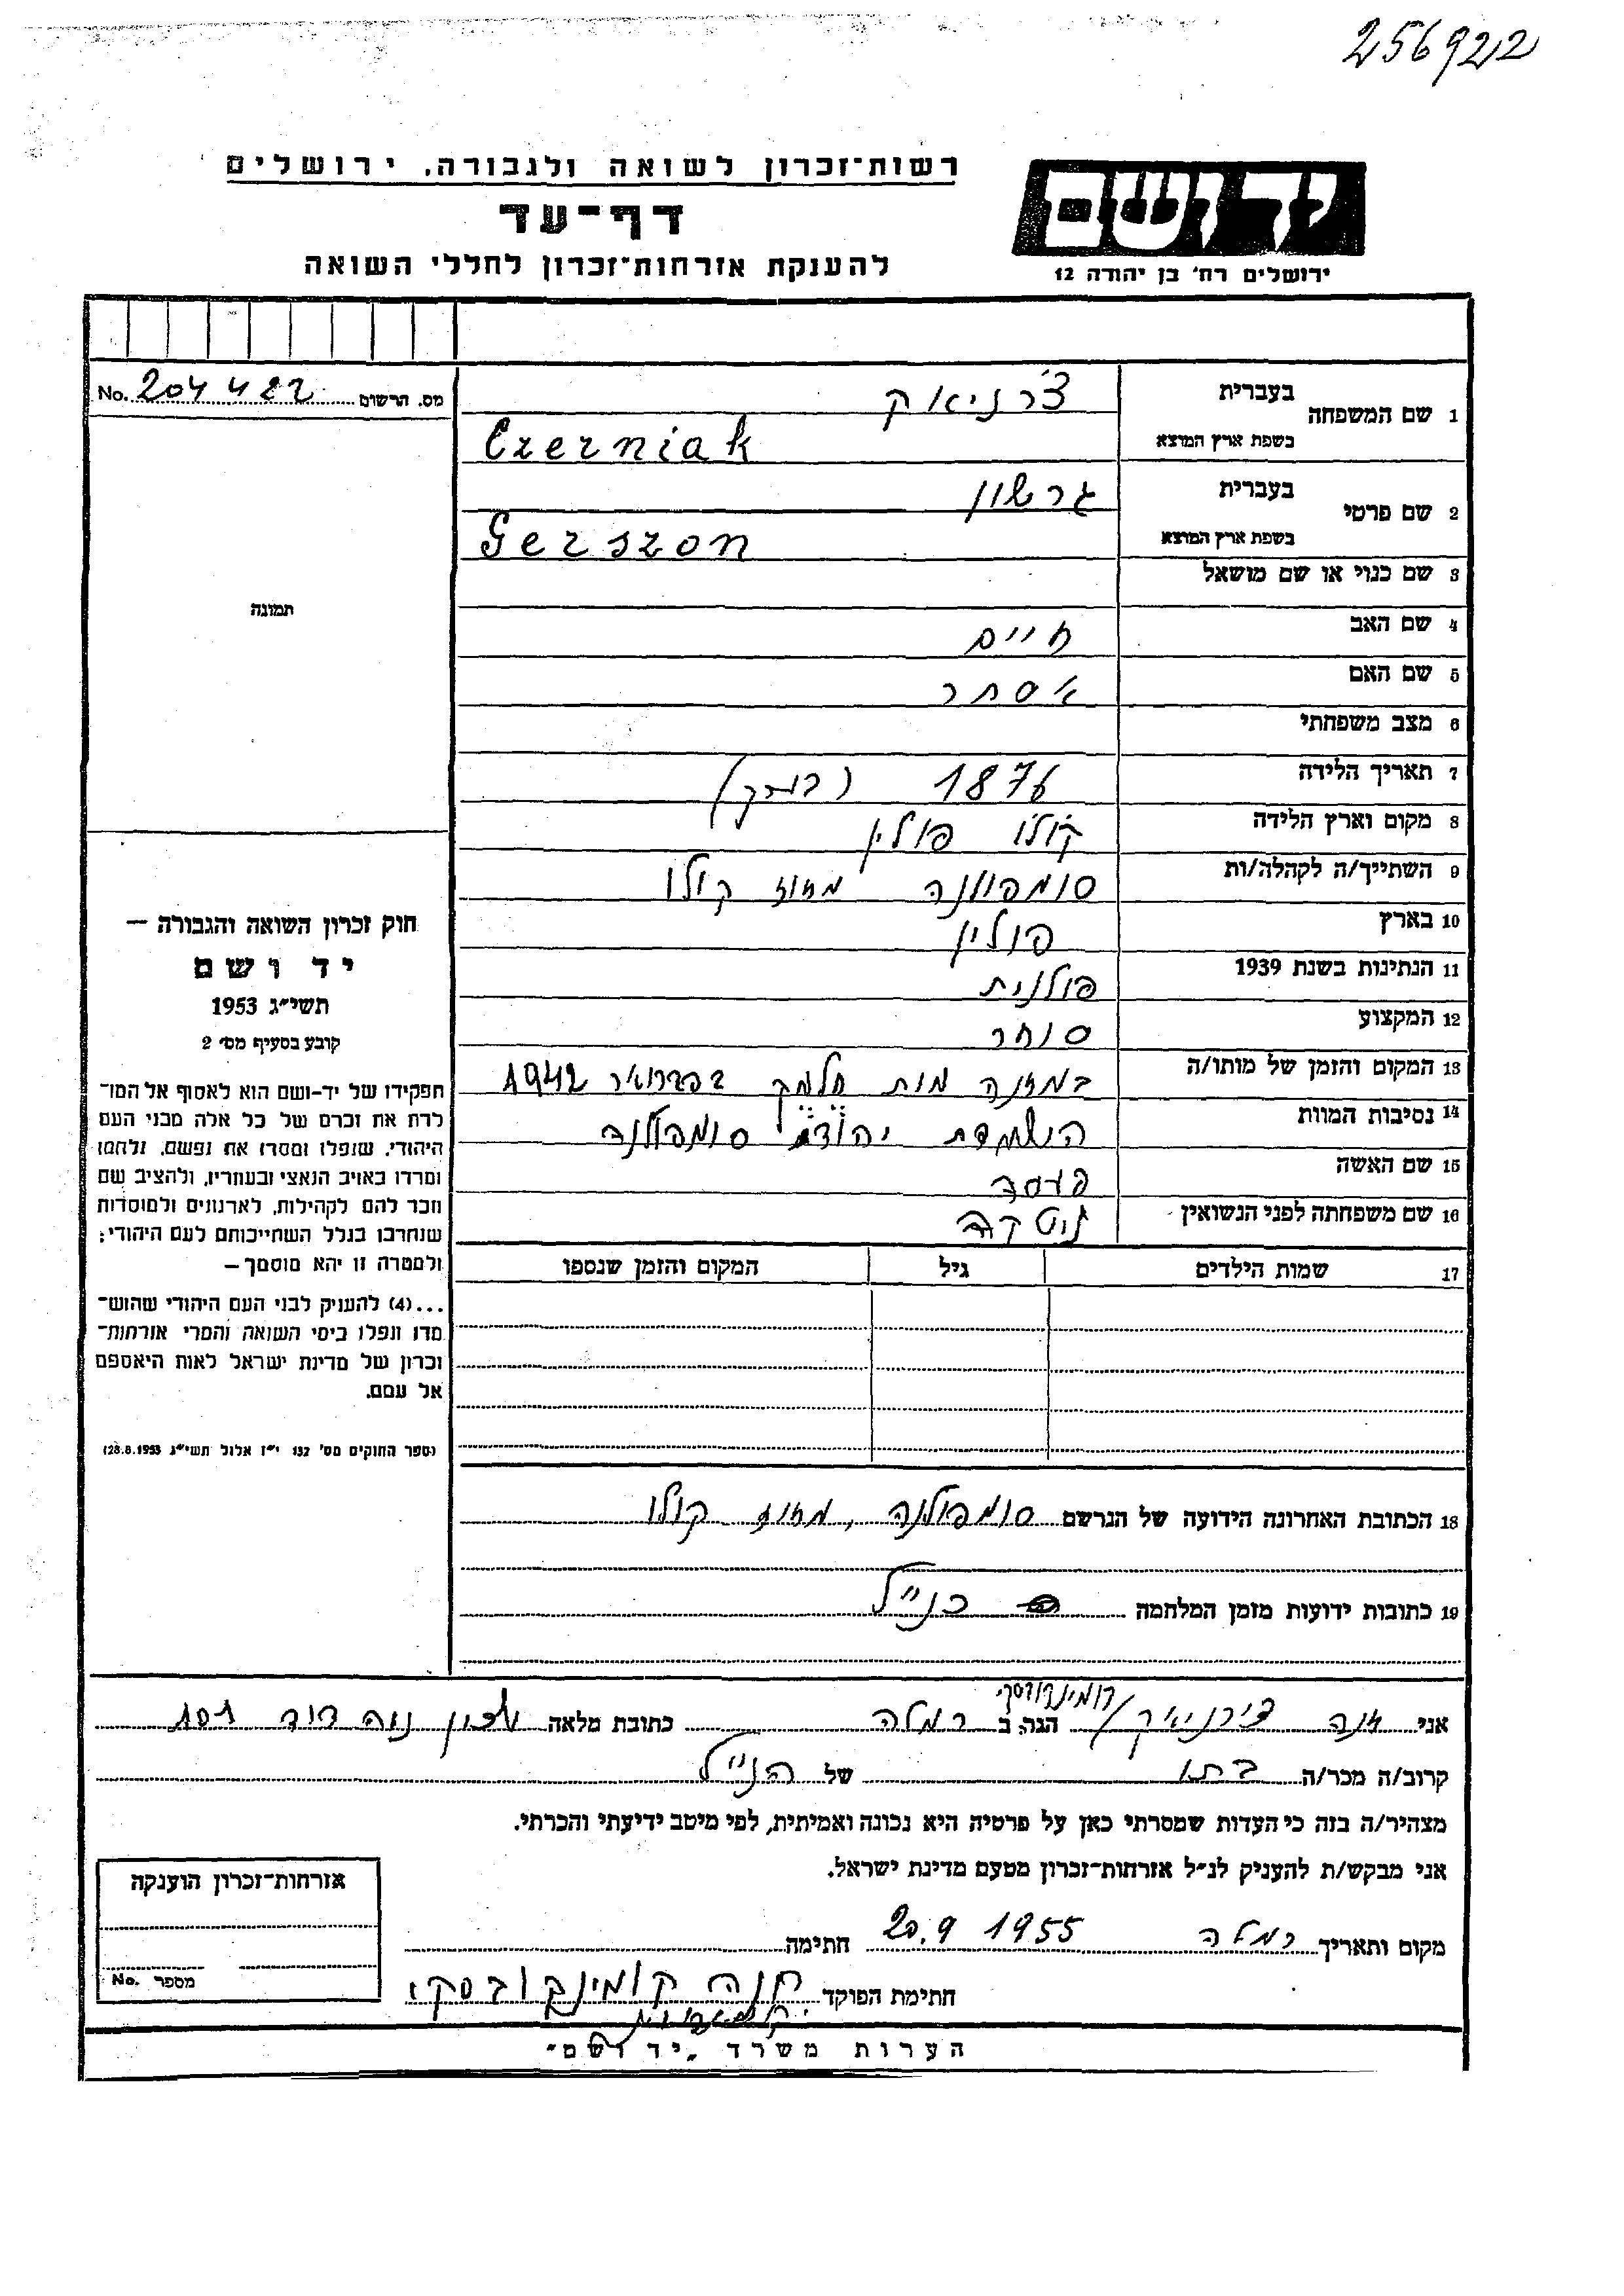 256922
רשות־זכרון לשואה ולגבורה, ירושלים
דף־עד
להענקת אזרחות־זכרון לחללי השואה
יד ושם
ירושלים רח׳ בן יהודה 12
מס. הרשום 204422 No.
1 שם המשפחה בעברית צ׳רניאק
בשפת ארץ המוצא Czerniak
2 שם פרטי בעברית גרשון
בשפת ארץ המוצא Gerszon
3 שם כנוי או שם מושאל
4 שם האב חיים
5 שם האם אסתר
6 מצב משפחתי
7 תאריך הלידה 1876
8 מקום וארץ הלידה קולו פולין
9 השתייך/ה לקהלה/ות סומפולנה מחוז קולו
10 בארץ פולין
11 הנתינות בשנת 1939 פולנית
12 המקצוע סוחר
13 המקום והזמן של מותו/ה במחנה מות חלמנו בפברואר 1942
14 נסיבות המוות השמדת יהודי סומפולנה
15 שם האשה
16 שם משפחתה לפני הנשואין
17 שמות הילדים גיל המקום והזמן שנספו
18 הכתובת האחרונה הידועה של הנרשם סומפולנה, מחוז קולו
19 כתובות ידועות מזמן המלחמה כנ״ל
תמונה
חוק זכרון השואה והגבורה —
יד ושם
תשי״ג 1953
קובע בסעיף מס׳ 2
תפקידו של יד-ושם הוא לאסוף אל המו־
לדת את זכרם של כל אלה מבני העם
היהודי, שנפלו ומסרו את נפשם, נלחמו
ומרדו באויב הנאצי ובעוזריו, ולהציב שם
וזכר להם לקהילות, לארגונים ולמוסדות
שנחרבו בגלל השתייכותם לעם היהודי;
ולמטרה זו יהא מוסמך —
...(4) להעניק לבני העם היהודי שהוש־
מדו ונפלו בימי השואה והמרי אזרחות־
זכרון של מדינת ישראל לאות היאספם
אל עמם.
(ספר החוקים מס׳ 132 י״ז אלול תשי״ג 28.8.1953)
אני חנה צ׳רניאק/קומינקובסקי הגר. ב רמלה כתובת מלאה שכון נוה דוד 101
קרוב/ה מכר/ה בתו של הנ״ל
מצהיר/ה בזה כי העדות שמסרתי כאן על פרטיה היא נכונה ואמיתית, לפי מיטב ידיעתי והכרתי.
אני מבקש/ת להעניק לנ״ל אזרחות־זכרון מטעם מדינת ישראל.
מקום ותאריך רמלה 20.9 1955 חתימה
חתימת הפוקד חנה קומינקובסקי
אזרחות־זכרון הוענקה
מספר No.
הערות משרד „יד ושם״